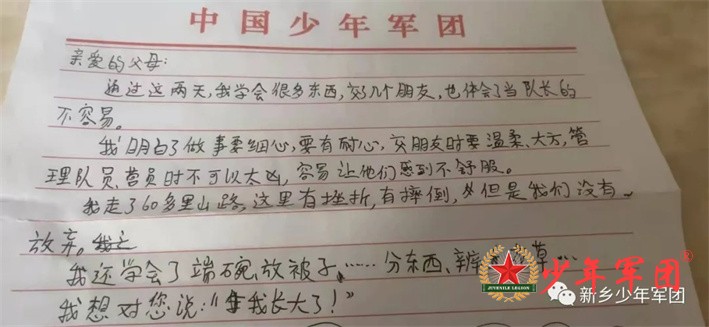 中国少年军团
亲爱的父母:
通过这两天,我学会很多东西,交几个朋友,也体会了当队长的
不容易。
我明白了做事要细心,要有耐心,交朋友时要温柔、大方,管
理队员、营员时不可以太凶,容易让他们感到不舒服。
我走了60多里山路,这里有挫折,有摔倒,但是我们没有
放弃。
我还学会了端碗、放被子……分东西、辨 草…
我想对您说:“我长大了!”
少年军团®
JUVENILE LEGION
新乡少年军团